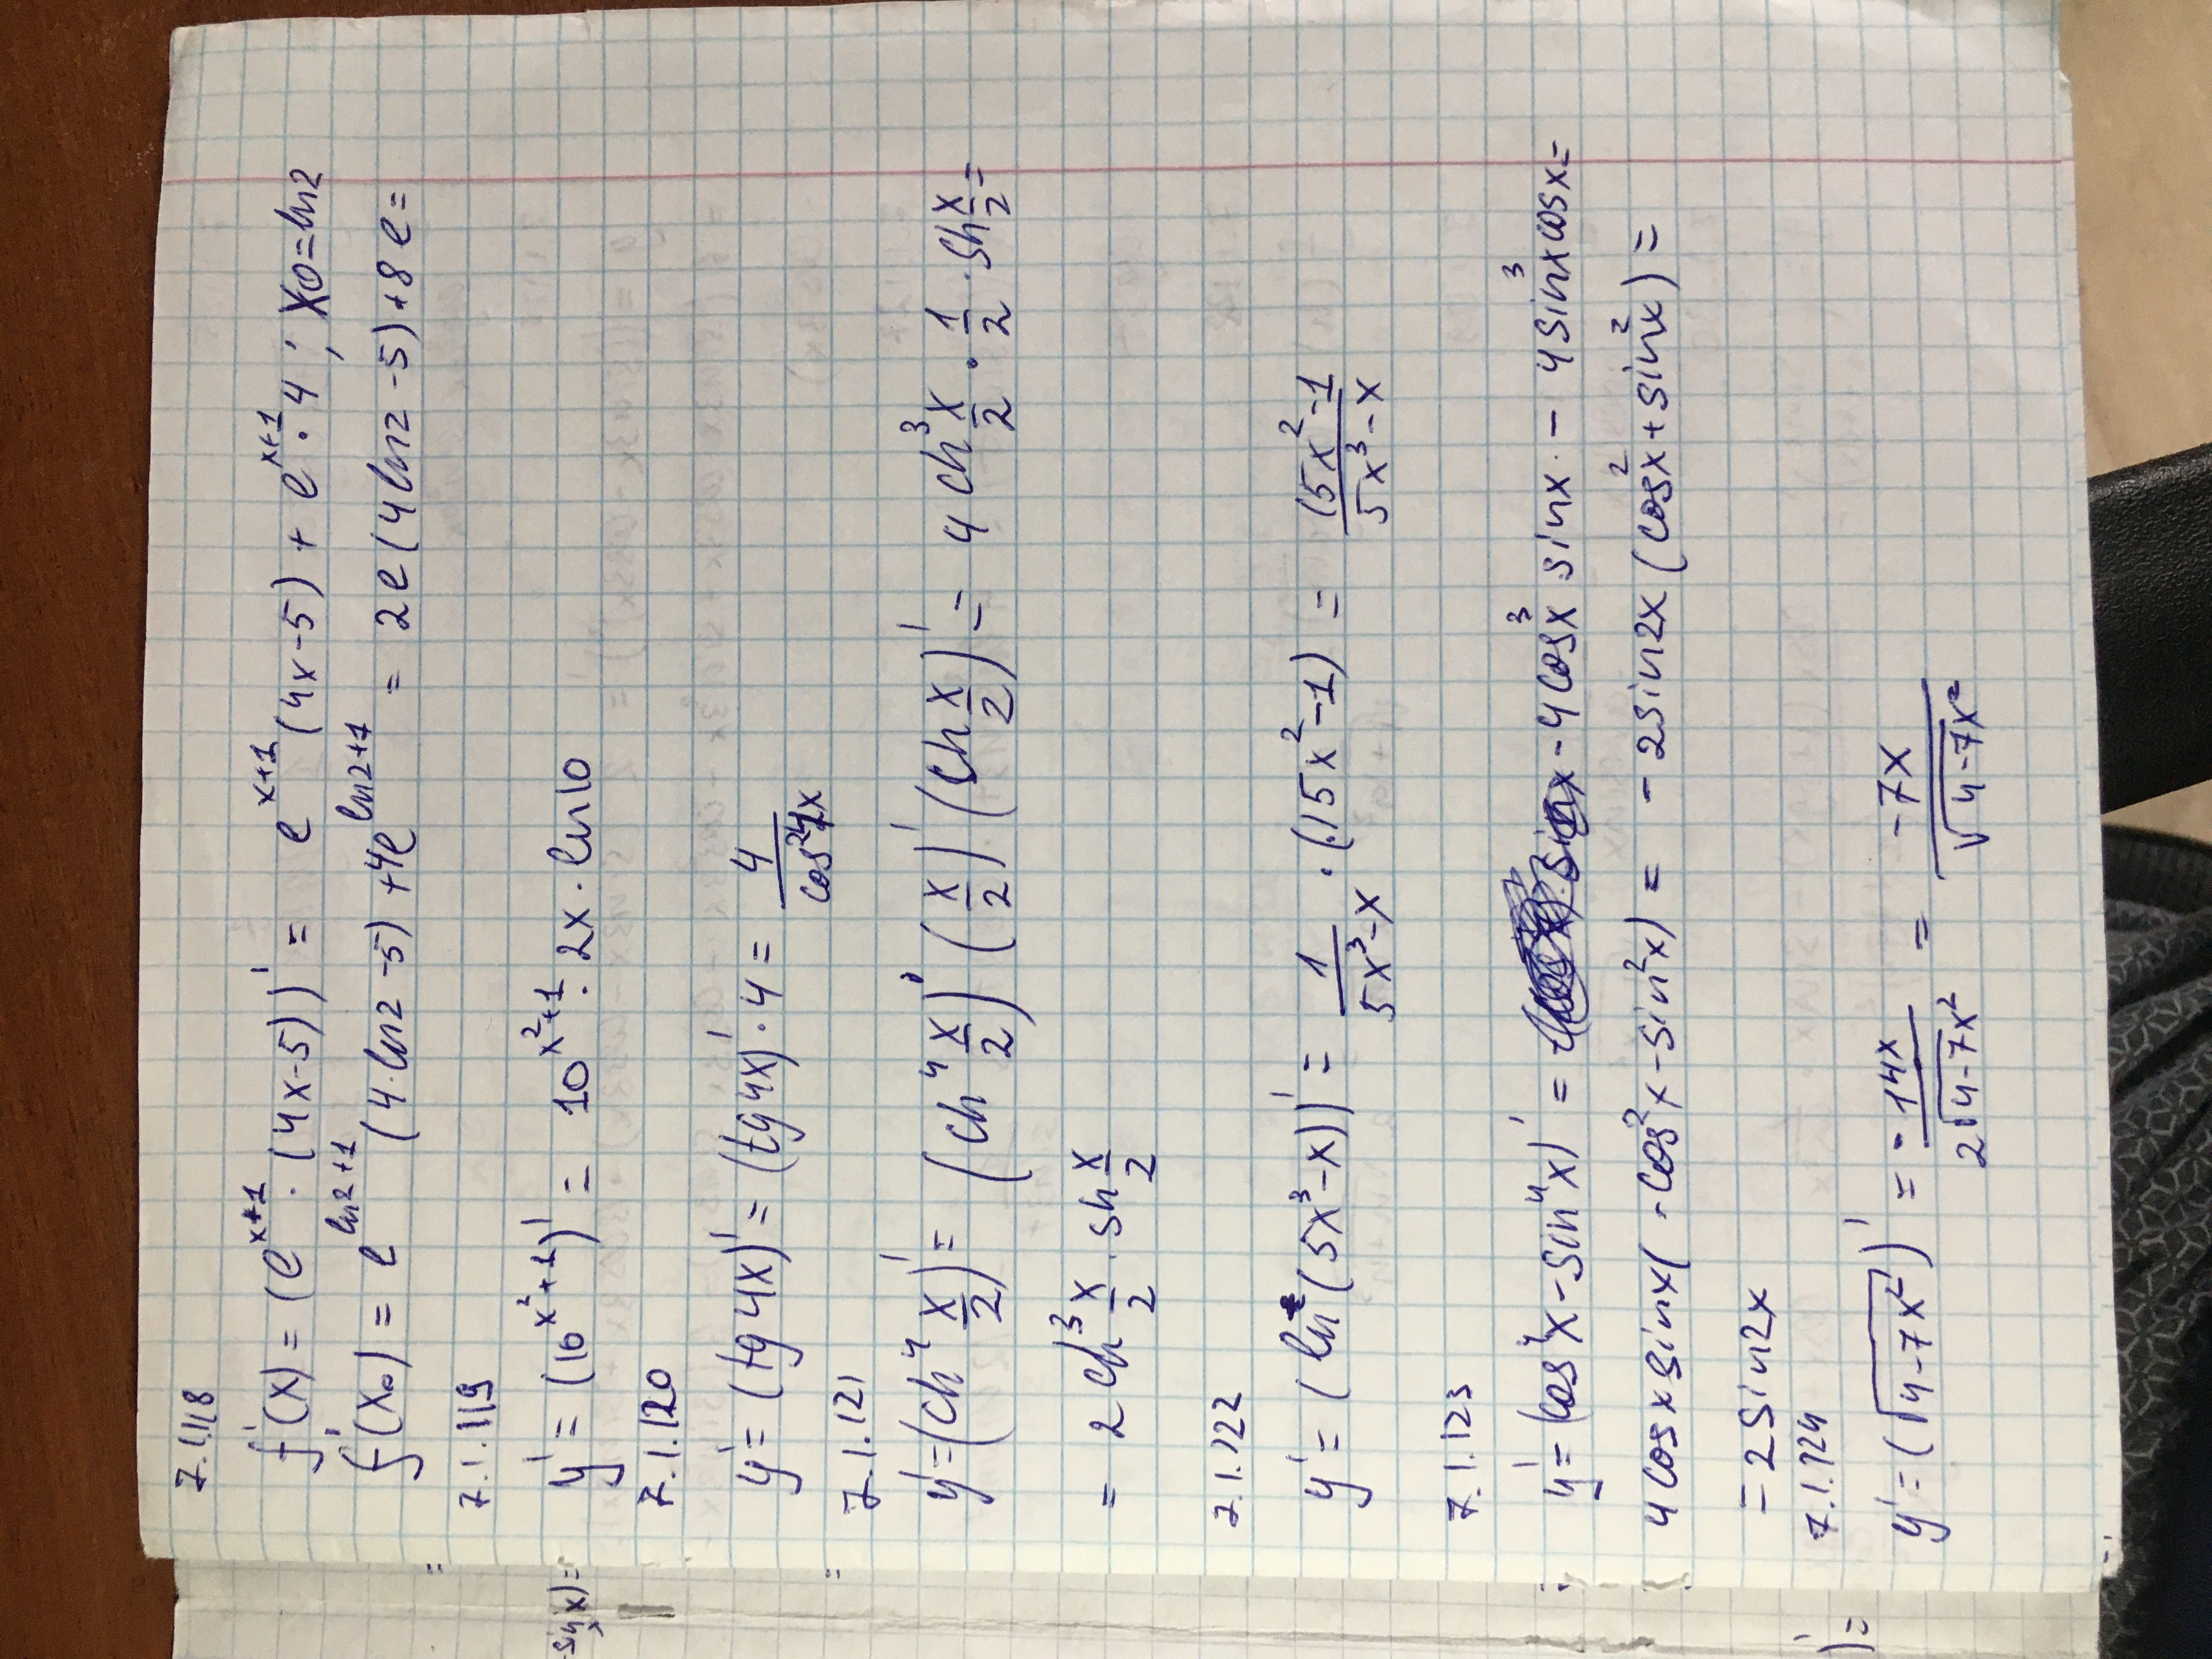 7.1.118
f'(x) = (e^{x+1} · (4x-5))' = e^{x+1} (4x-5) + e^{x+1} · 4 ; x0 = ln2
f'(x₀) = e^{ln2+1} (4·ln2-5) + 4e^{ln2+1} = 2e(4ln2-5)+8e=
7.1.119
y' = (10^{x²+1})' = 10^{x²+1} · 2x · ln10
7.1.120
y' = (tg4x)' = (tg4x)' · 4 = 4/cos²4x
7.1.121
y' = (ch⁴ x/2)' = (ch⁴ x/2)' (x/2)' (ch x/2)' = 4ch³ x/2 · 1/2 · sh x/2 =
= 2ch³ x/2 · sh x/2
7.1.122
y' = (ln(5x³-x))' = 1/(5x³-x) · (15x²-1) = (15x²-1)/(5x³-x)
7.1.123
y' = (cos⁴x - sin⁴x)' = -4cos³x sinx · - 4sin³x cosx =
4cosx sinx(-cos²x - sin²x) = -2sin2x (cos²x + sin²x) =
= 2sin2x
7.1.124
y' = (√(4-7x²))' = -14x/(2√(4-7x²)) = -7x/√(4-7x²)